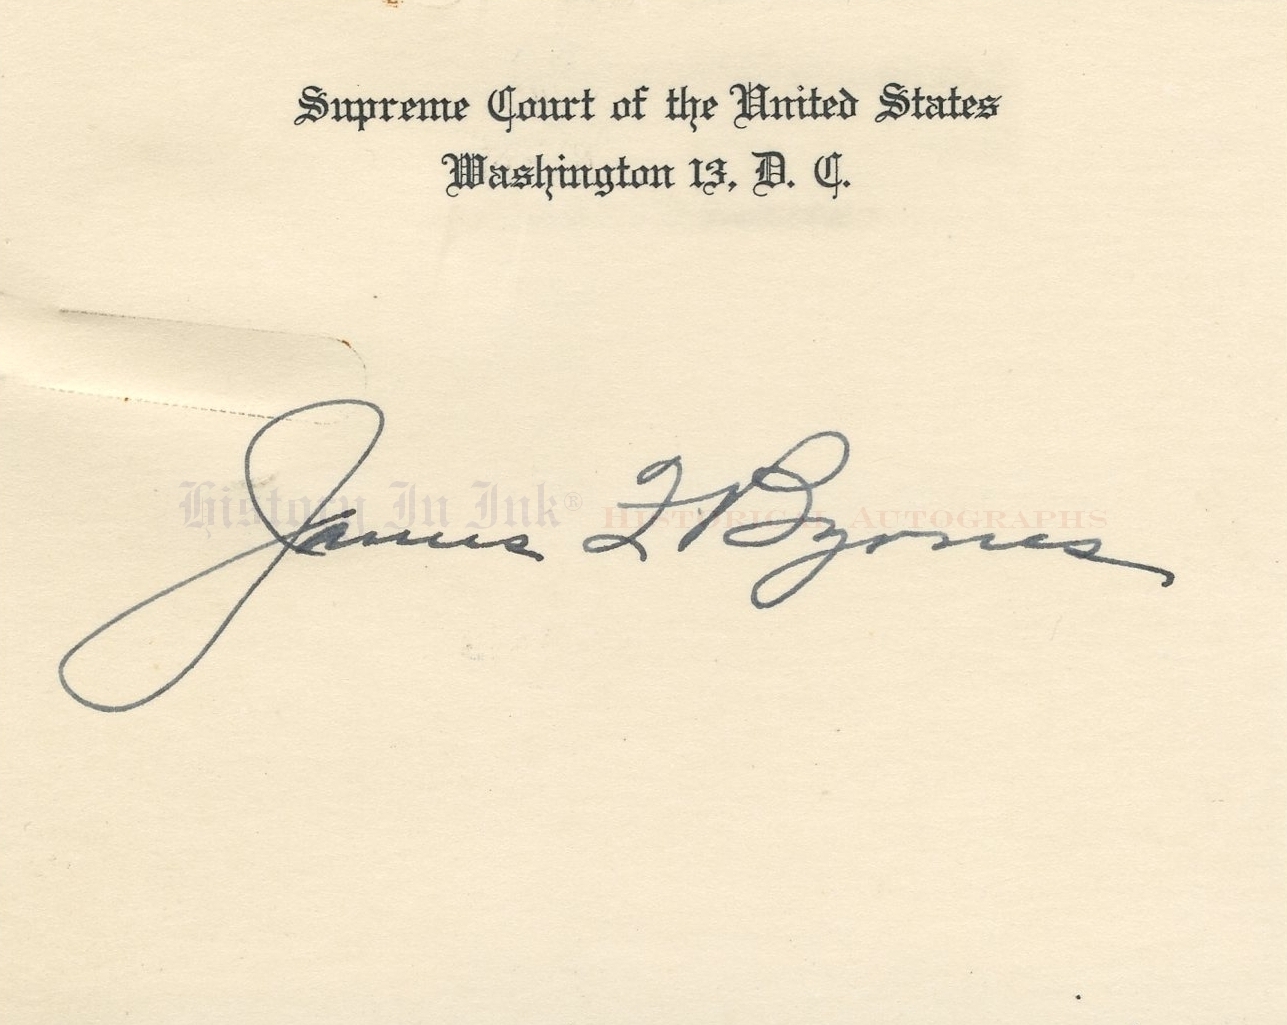 Supreme Court of the United States
Washington 13, D. C.
James F Byrnes
History In Ink® Historical Autographs